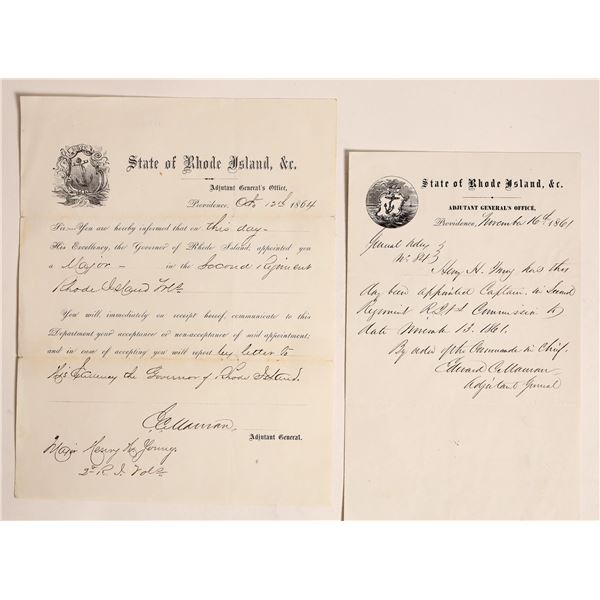 State of Rhode Island, &c.
Adjutant General's Office,
Providence, Octo 12th 1864
Sir:-You are hereby informed that on this day-
His Excellency, the Governor of Rhode Island, appointed you
a Major - in the Second Regiment
Rhode Island Vols
You will immediately on receipt hereof communicate to this
Department your acceptance or non-acceptance of said appointment;
and in case of accepting you will report by letter to
His Excellency the Governor of Rhode Island.
E. C. Mauran,
Adjutant General.
Major Henry H. Young,
2d R. I. Vols
State of Rhode Island, &c.
ADJUTANT GENERAL'S OFFICE,
Providence, November 16th 1861
General Orders
No.
Henry H. Young has this
day been appointed Captain in Second
Regiment R.I.V. Commission to
date November 13. 1861.
By order of the Commander in Chief,
Edward C. Mauran
Adjutant General